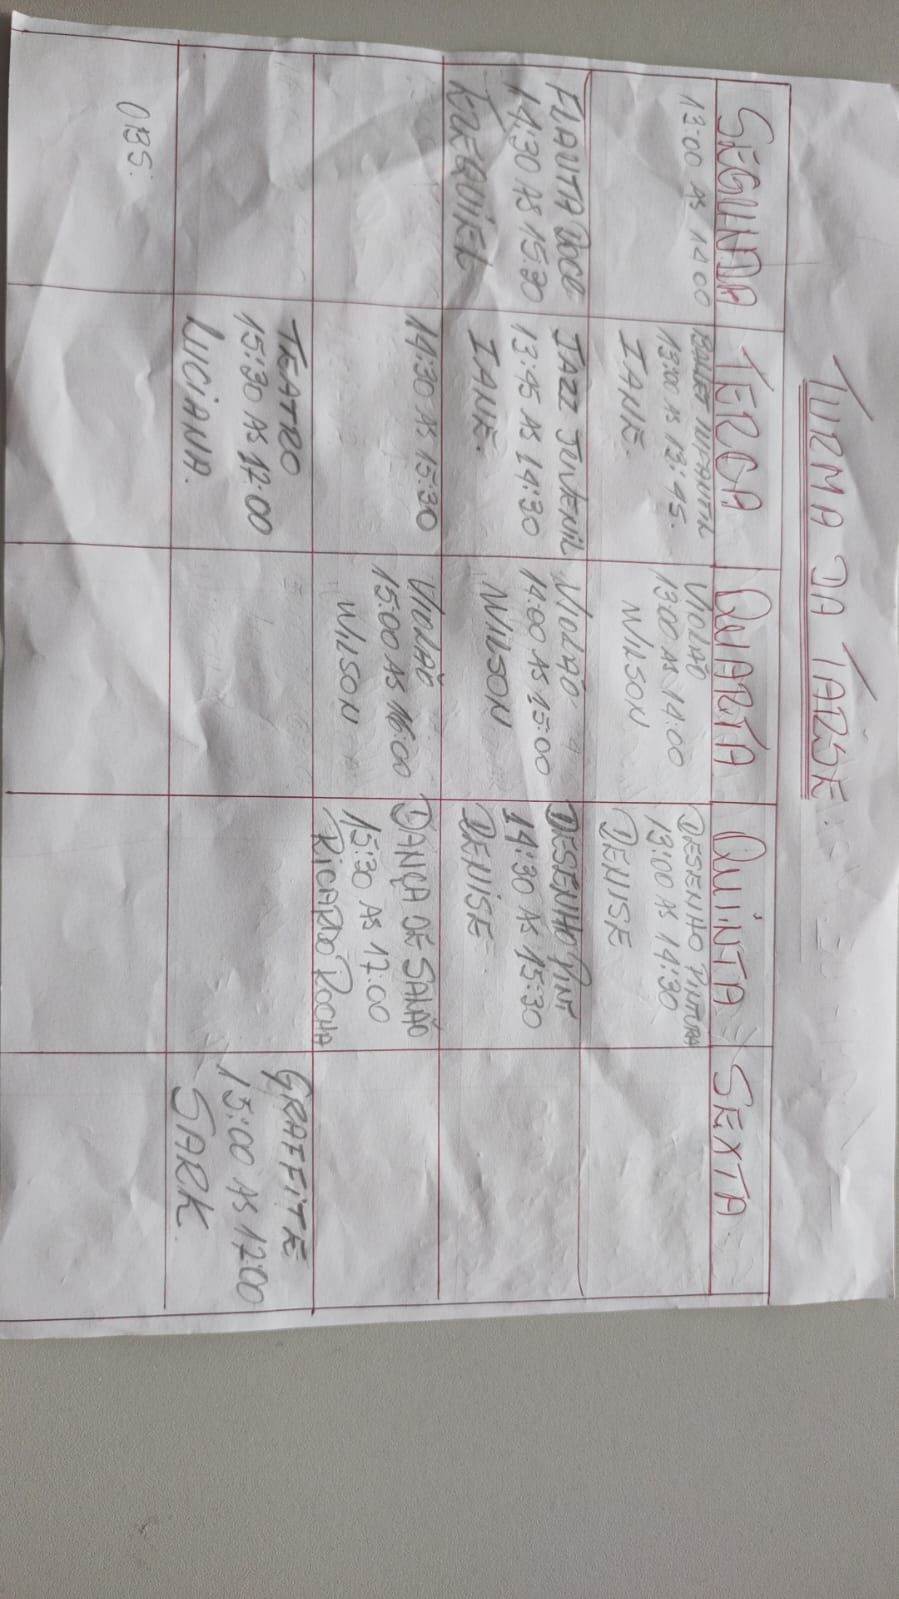 TURMA DA TARDE.
SEGUNDA
TERÇA
QUARTA
QUINTA
SEXTA
13:00 AS 14:00
BALLET INFANTIL
13:00 AS 13:45.
IANE.
VIOLÃO
13:00 AS 14:00
WILSON
DESENHO PINTURA
13:00 AS 14:30
DENISE
FLAUTA DOCE
14:30 AS 15:30
EZEQUIEL
JAZZ JUVENIL
13:45 AS 14:30
IANE.
VIOLÃO
14:00 AS 15:00
WILSON
DESENHO PINT
14:30 AS 15:30
DENISE
14:30 AS 15:30
VIOLÃO
15:00 AS 16:00
WILSON
DANÇA DE SALÃO
15:30 AS 17:00
RICARDO ROCHA
TEATRO
15:30 AS 17:00
LUCIANA.
GRAFFITE
15:00 AS 17:00
SARK.
OBS: